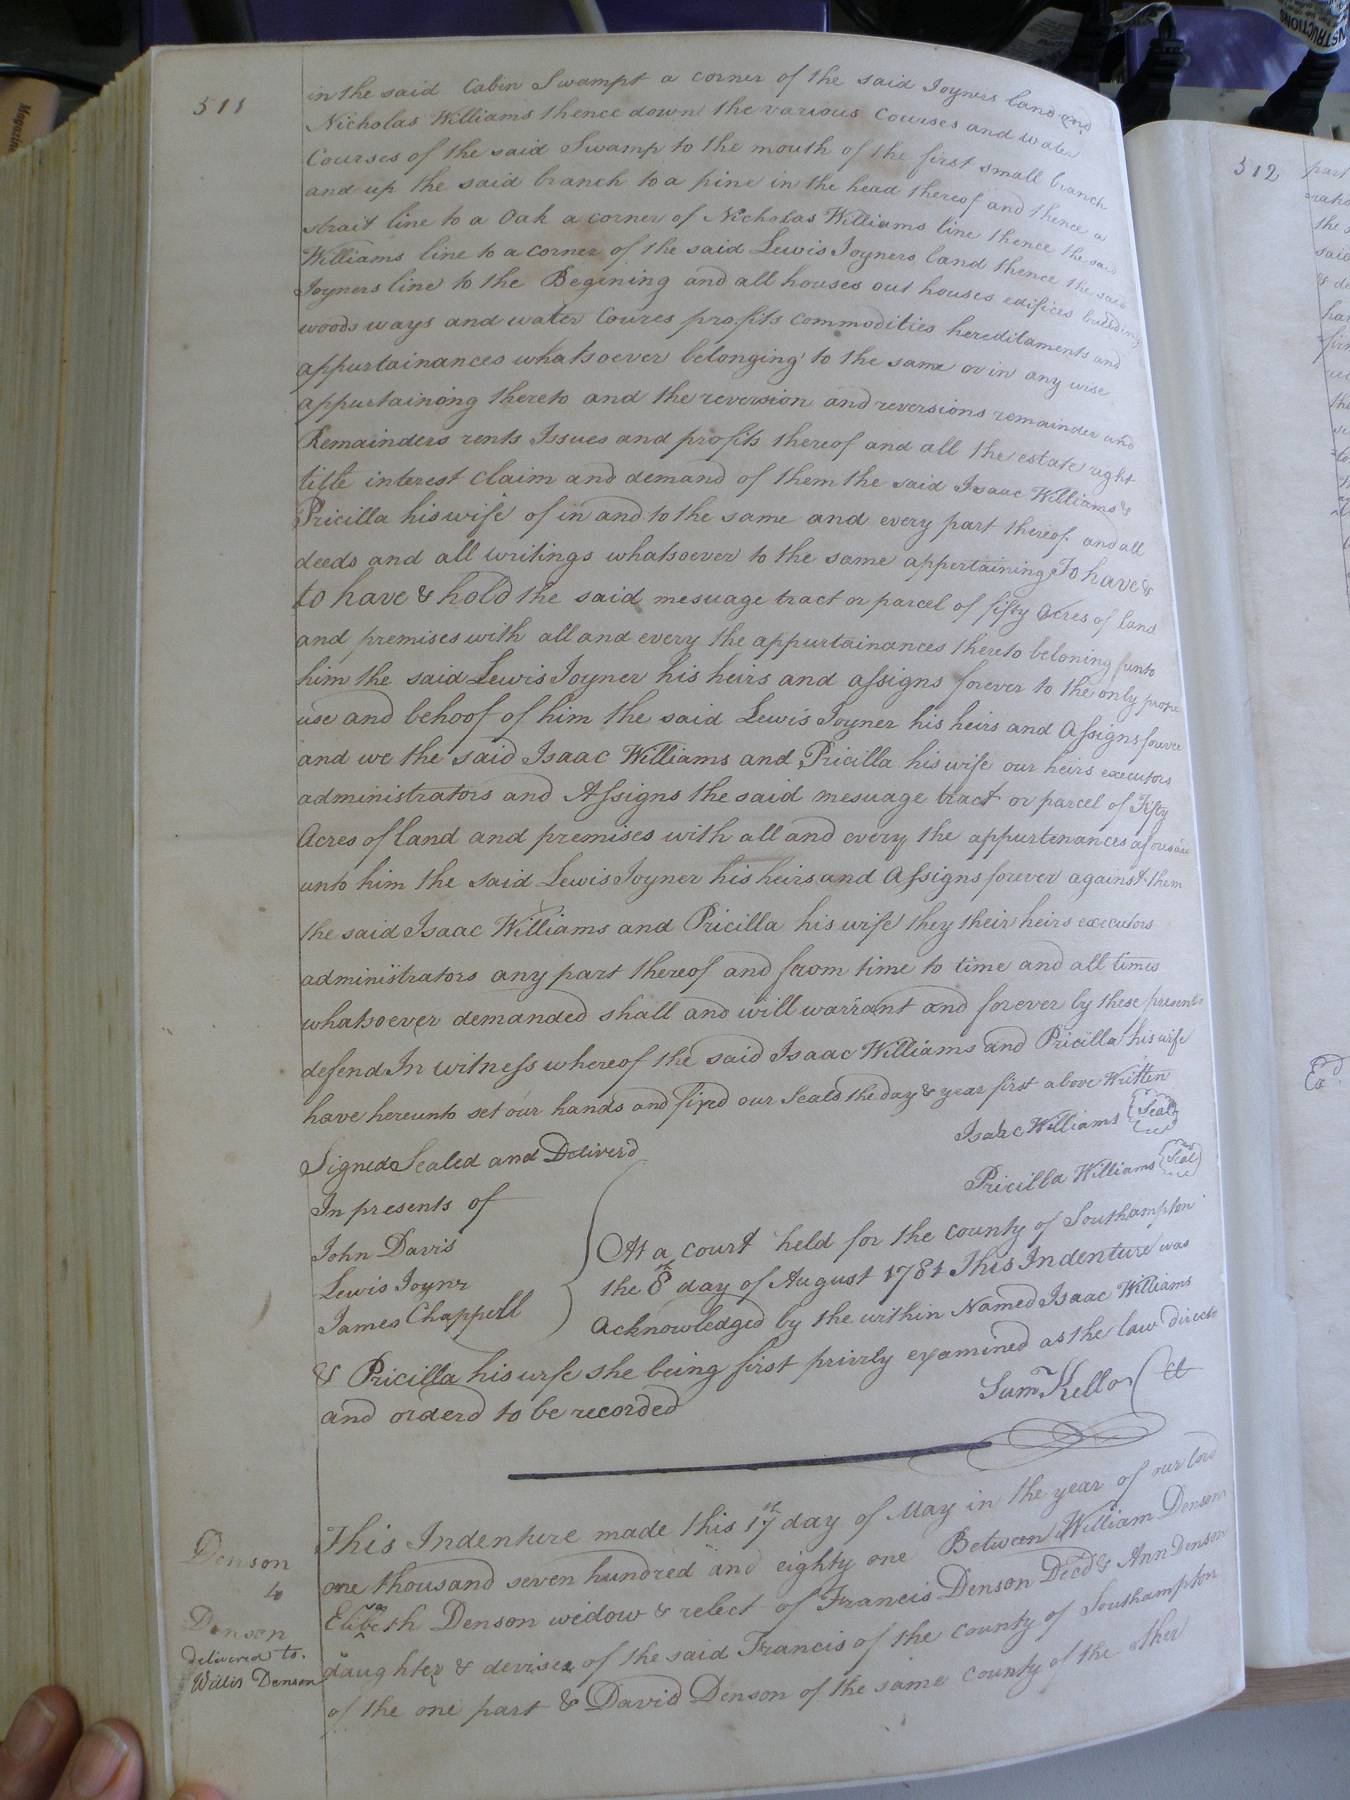 511
in the said Cabin Swampt a corner of the said Joyners land and
Nicholas Williams thence down the various Courses and water
Courses of the said Swamp to the mouth of the first small branch
and up the said branch to a pine in the head thereof and thence a
strait line to a Oak a corner of Nicholas Williams line thence the said
Williams line to a corner of the said Lewis Joyners land thence the said
Joyners line to the Begining and all houses out houses edifices building
woods ways and water Coures profits commodities hereditaments and
appurtainances whatsoever belonging to the same or in any wise
appurtainong thereto and the reversion and reversions remainder and
Remainders rents Issues and profits thereof and all the estate right
title interest Claim and demand of them the said Isaac Williams &
Pricilla his wife of in and to the same and every part thereof and all
deeds and all writings whatsoever to the same appertaining To have &
to have & hold the said mesuage tract or parcel of fifty Acres of land
and premises with all and every the appurtainances thereto beloning unto
him the said Lewis Joyner his heirs and assigns forever to the only prope
use and behoof of him the said Lewis Joyner his heirs and Assigns forever
and we the said Isaac Williams and Pricilla his wife our heirs executors
administrators and Assigns the said mesuage tract or parcel of Fifty
Acres of land and premises with all and every the appurtenances aforesaid
unto him the said Lewis Joyner his heirs and Assigns forever against them
the said Isaac Williams and Pricilla his wife they their heirs executors
administrators any part thereof and from time to time and all times
whatsoever demanded shall and will warrant and forever by these presents
defend In witness whereof the said Isaac Williams and Pricilla his wife
have hereunto set our hands and fixed our Seals the day & year first above Written
Isaac Williams Seal
Signed Sealed and Deliverd
Pricilla Williams Seal
In presents of
John Davis
Lewis Joyner
James Chappell
At a court held for the county of Southampton
the 8th day of August 1781 This Indenture was
Acknowledged by the within Named Isaac Williams
& Pricilla his wife she being first privily examined as the law directs
and orderd to be recorded
Sam Kello Ct
Denson
to
Denson
delivered to
Willis Denson
This Indenture made this 17th day of May in the year of our lord
one thousand seven hundred and eighty one Between William Denson
Elizabeth Denson widow & relect of Francis Denson Decd & Ann Denson
daughter & devisee of the said Francis of the county of Southampton
of the one part & David Denson of the same county of the other
512
part
the
said